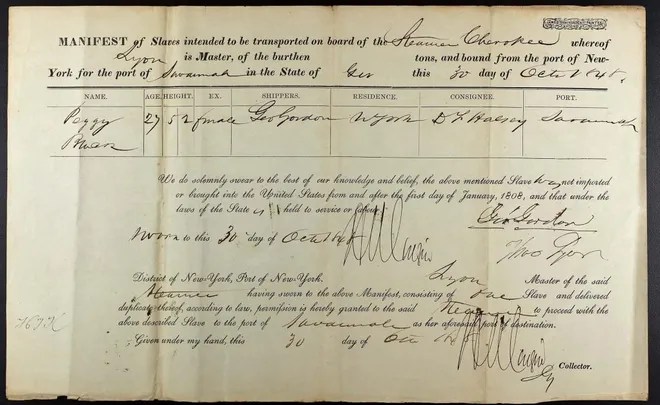 MANIFEST of Slaves intended to be transported on board of the Steamer Cherokee whereof
Lyon is Master, of the burthen tons, and bound from the port of New-
York for the port of Savannah in the State of Geo this 30 day of Oct 1848.
NAME. AGE. HEIGHT. EX. SHIPPERS. RESIDENCE. CONSIGNEE. PORT.
Peggy 27 5 2 female Geo Gordon NYork D L Halsey Savannah
We do solemnly swear to the best of our knowledge and belief, the above mentioned Slave was not imported
or brought into the United States from and after the first day of January, 1808, and that under the
laws of the State is held to service or labour.
Geo Gordon
Sworn to this 30 day of Oct 1848
Tho Lyon
District of New-York, Port of New-York. Lyon Master of the said
Steamer having sworn to the above Manifest, consisting of One Slave and delivered
duplicate thereof, according to law, permission is hereby granted to the said to proceed with the
above described Slave to the port of Savannah as her aforesaid port of destination.
Given under my hand, this 30 day of Oct
Collector.